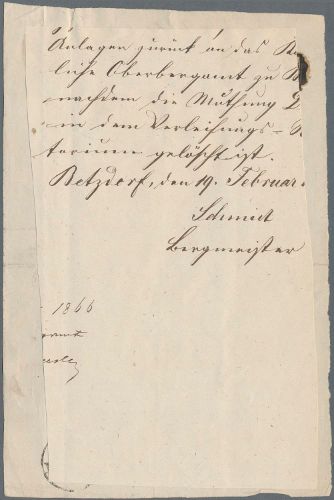 Anlagen zurück an das
liche Oberbergamt zu
nachdem die Muthung
in dem Verleihungs-
torium gelöscht ist.
Betzdorf, den 19. Februar
Schmidt
Bergmeister
1866